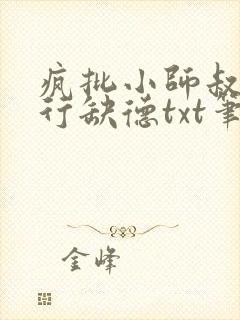 疯批小师叔
行缺德txt笔
金峰